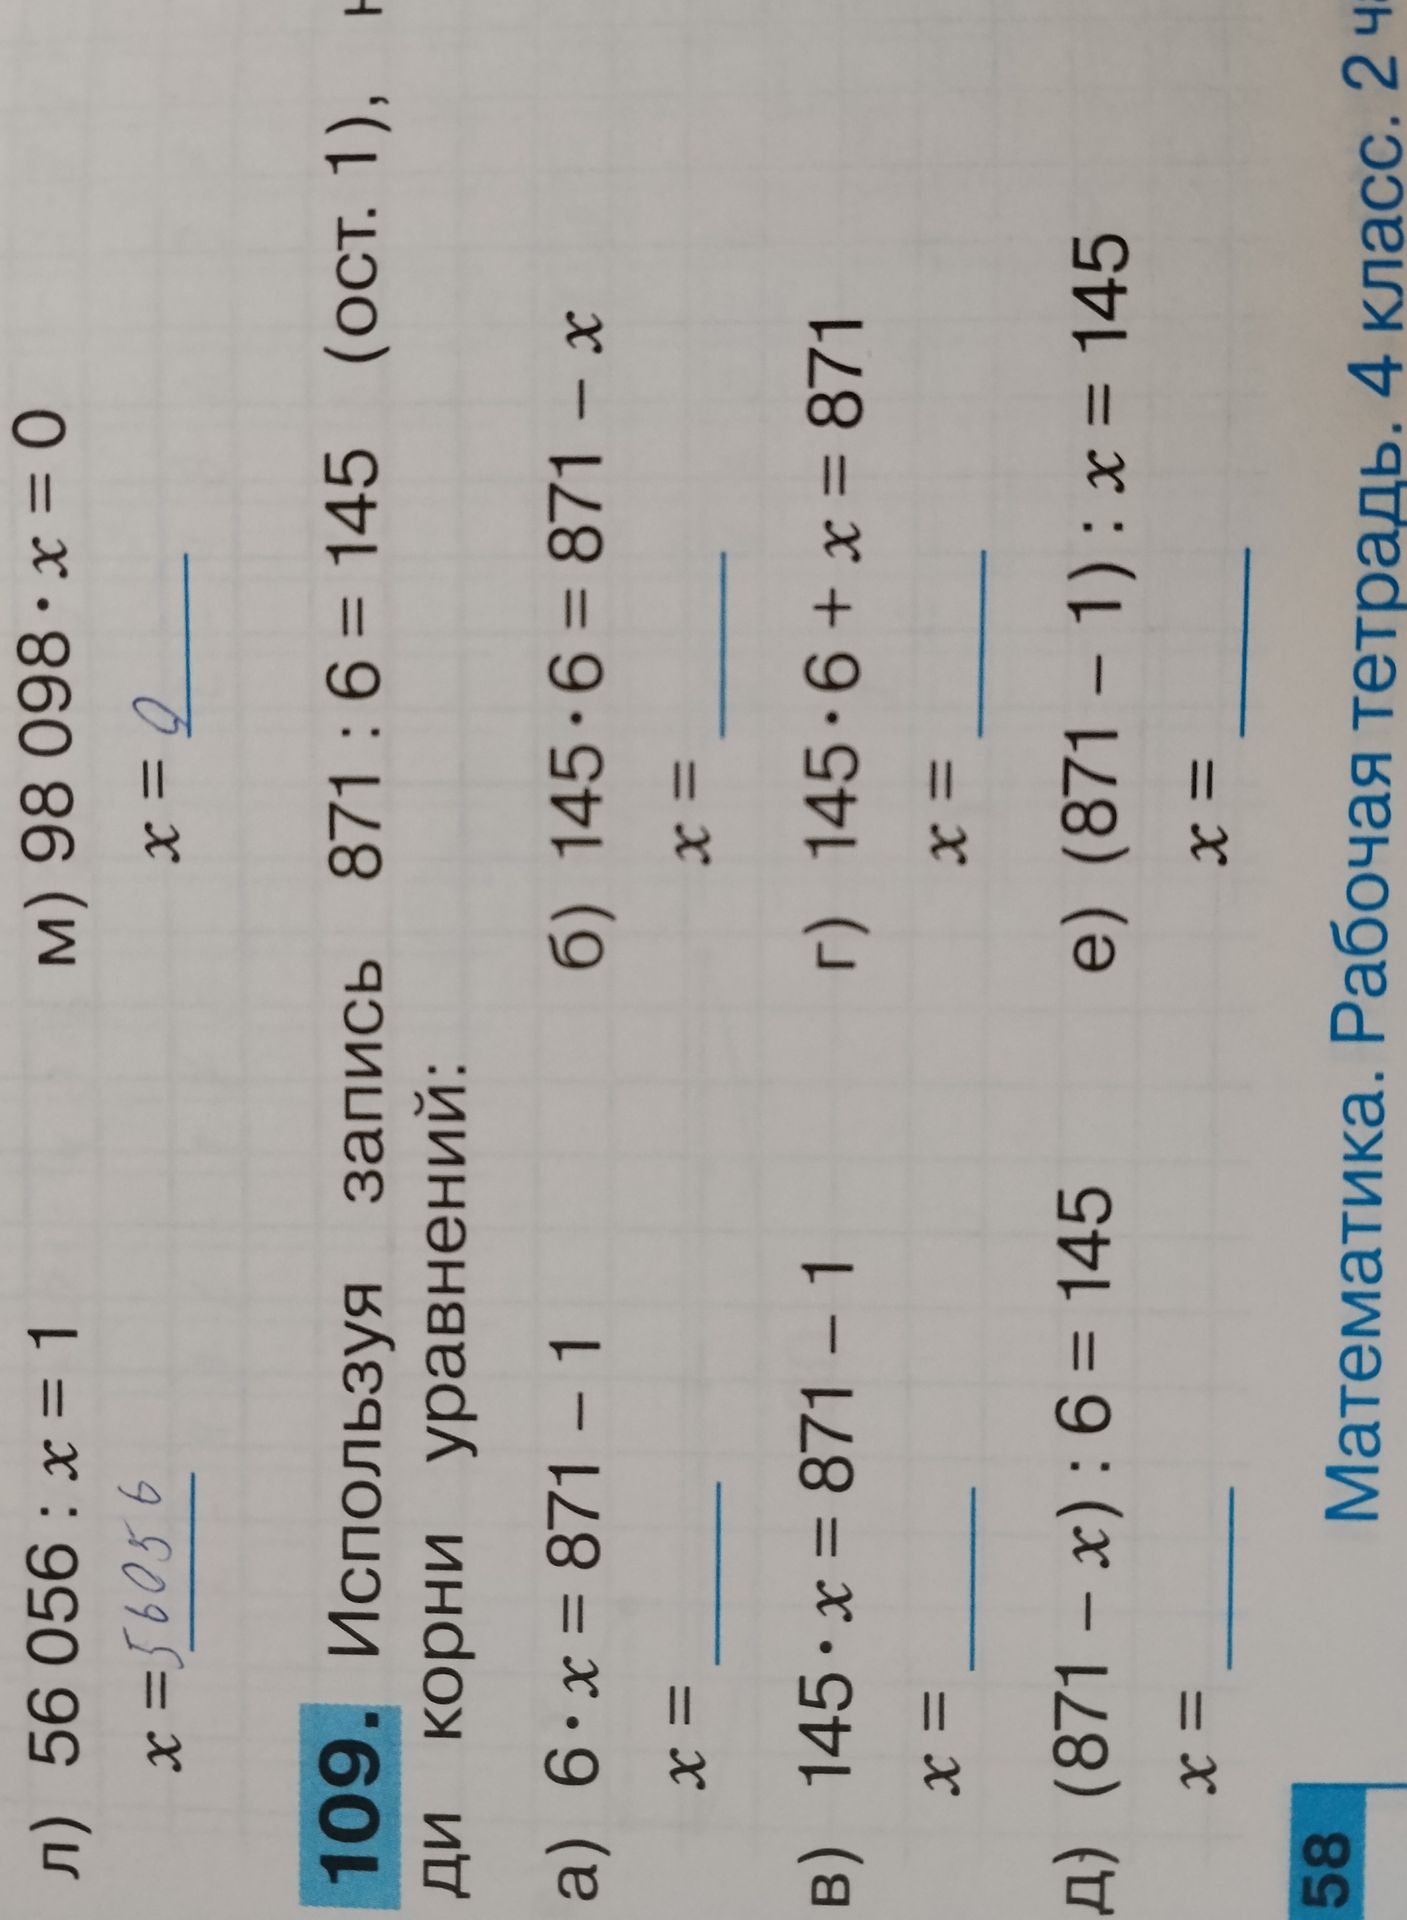 л) 56 056 : x = 1 м) 98 098 · x = 0
x = 56056 x = 0
109. Используя запись 871 : 6 = 145 (ост. 1),
ди корни уравнений:
а) 6 · x = 871 − 1 б) 145 · 6 = 871 − x
x = x =
в) 145 · x = 871 − 1 г) 145 · 6 + x = 871
x = x =
д) (871 − x) : 6 = 145 е) (871 − 1) : x = 145
x = x =
58 Математика. Рабочая тетрадь. 4 класс. 2